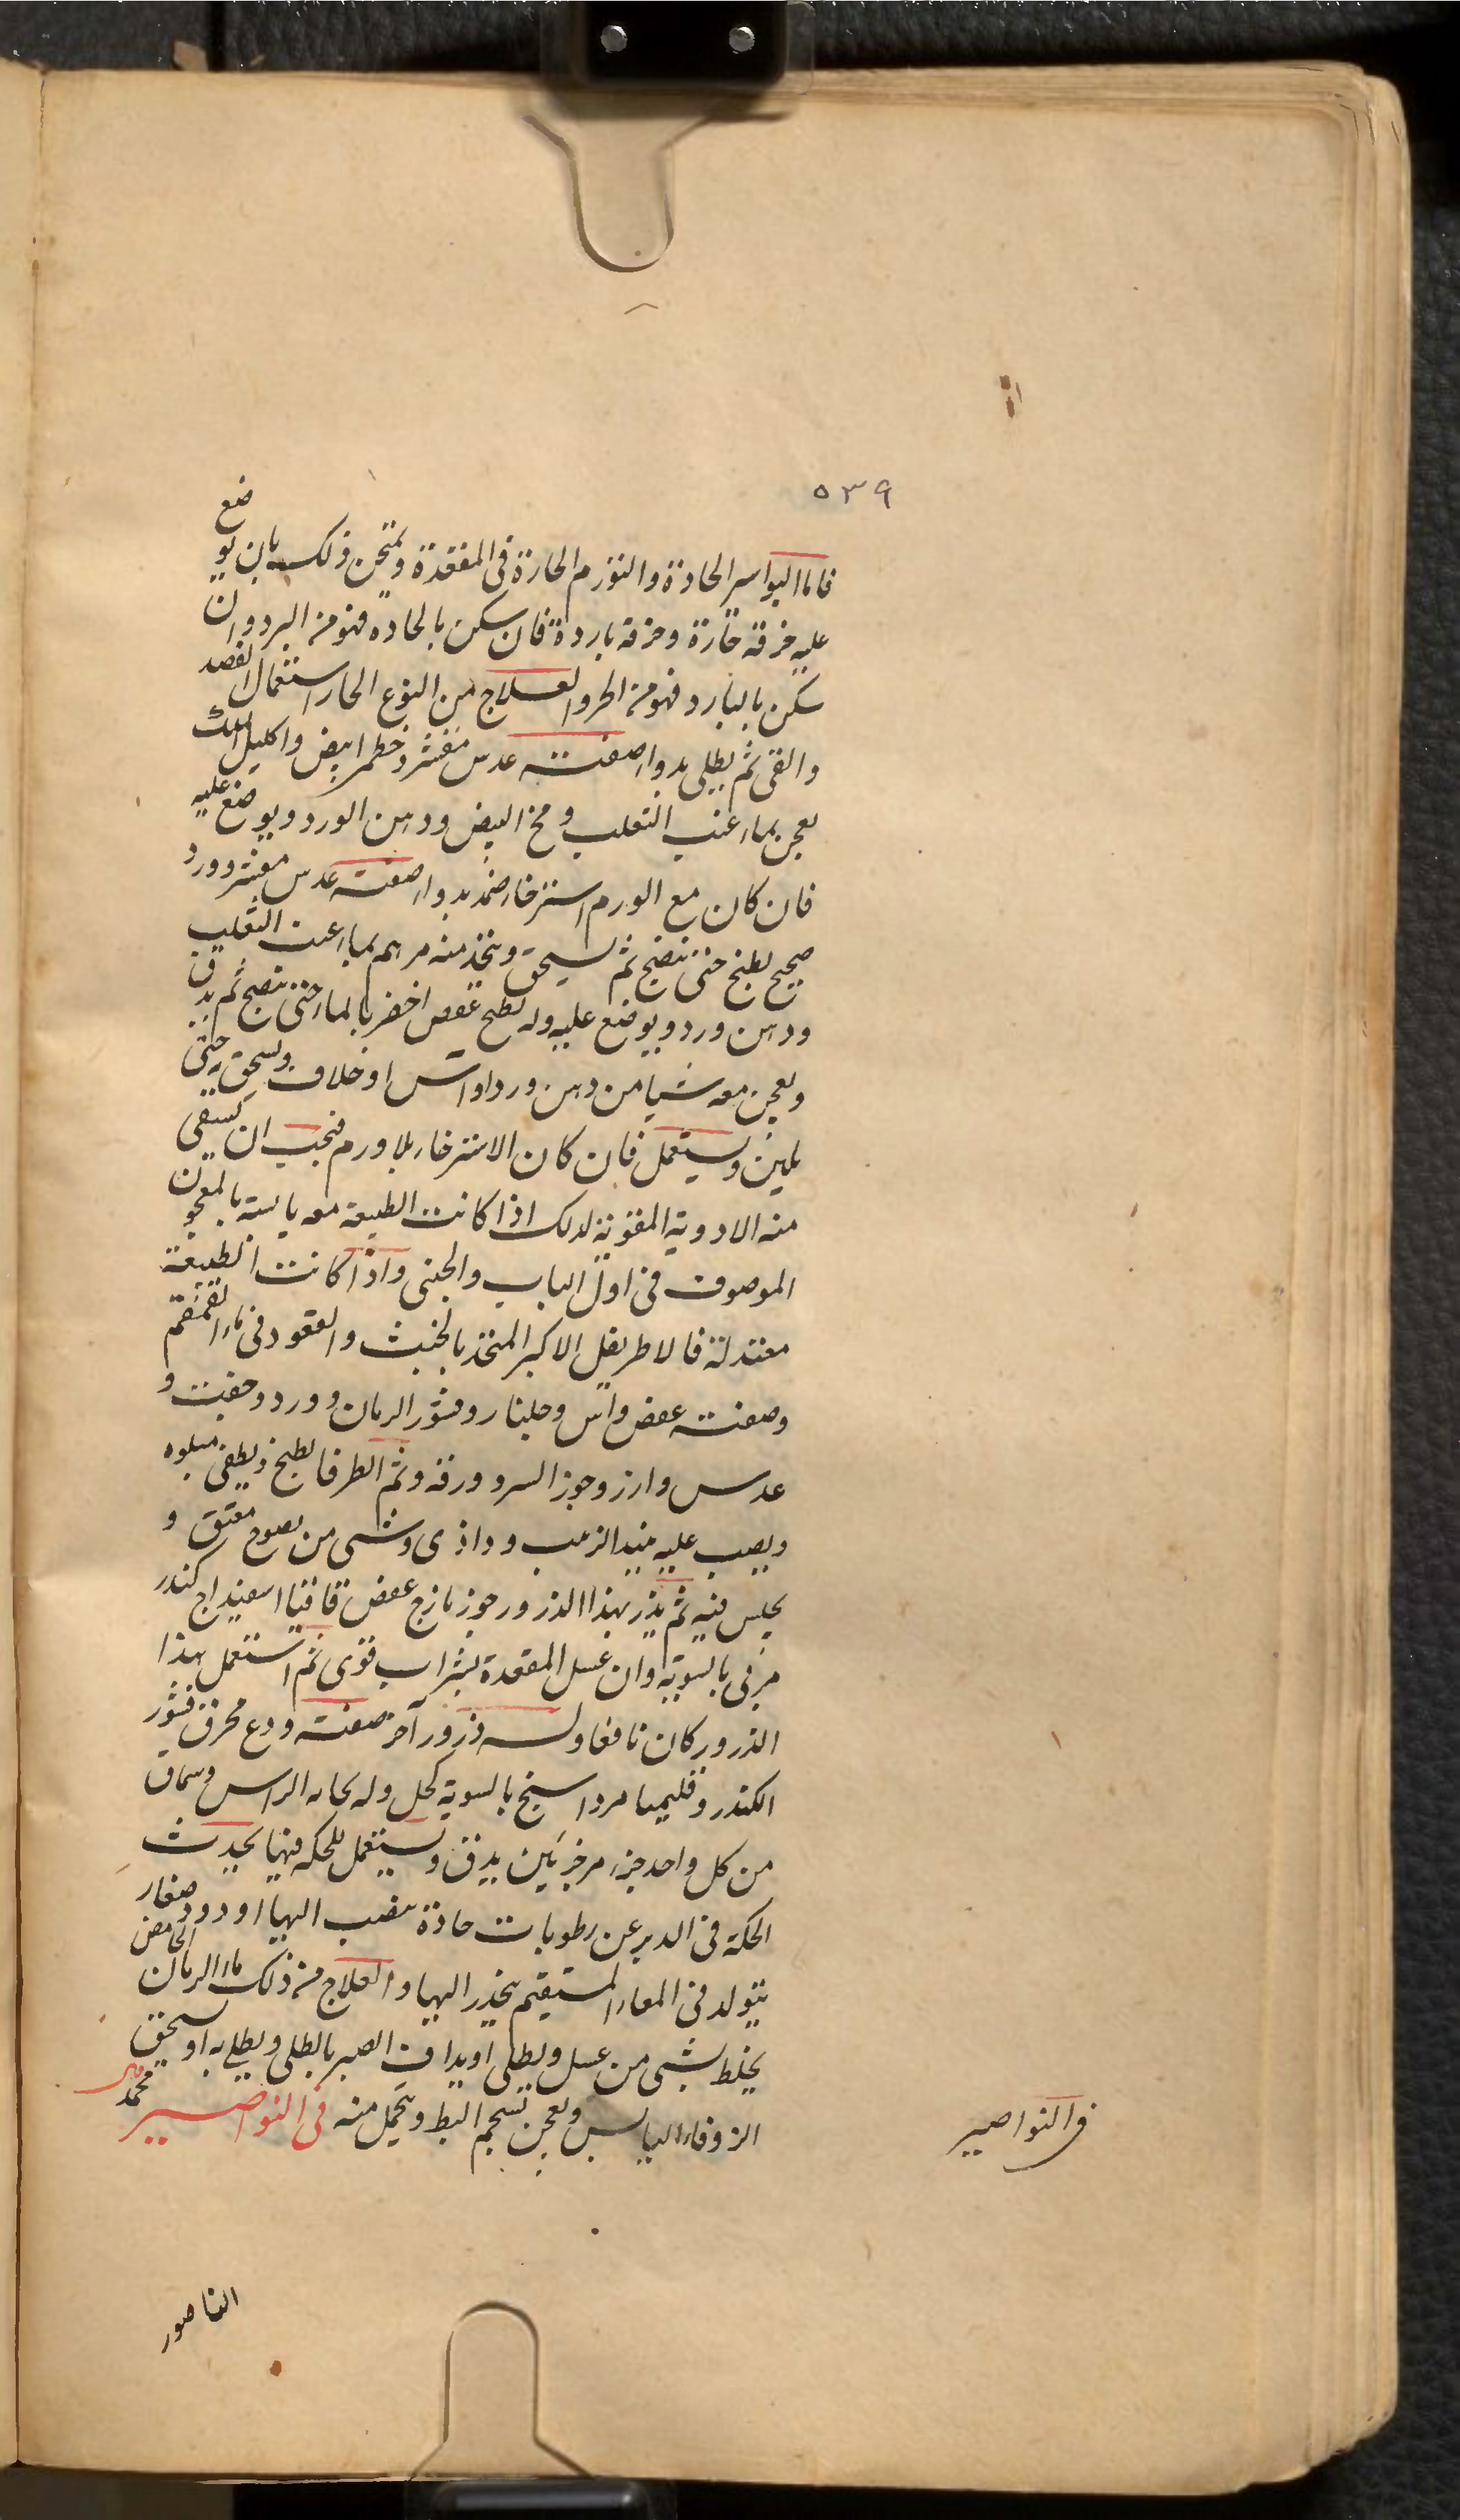 ٥٣٩
فاما البواسر الحادة والتورم الحارة فى المقعدة ويمتحن ذلك بان يوضع
عليه خرقة حارة وخرقة باردة فان سكن بالحاده فهو من البرد وان
سكن بالبارد فهو من الحر والعلاج من النوع الحار استعمال الفصد
والقى ثم يطلى بدواء صفته عدس مقشر وخطمى ابيض واكليل الملك
يعجن بماء عنب الثعلب ومخ البيض ودهن الورد ويوضع عليه
فان كان مع الورم استرخاء ضمد بدواء صفته عدس مقشر وورد
صحيح يطبخ حتى ينضج ثم يسحق ويتخذ منه مرهم بماء عنب الثعلب
ودهن ورد ويوضع عليه وله يطبخ عفص اخضر بالماء حتى ينضج ثم يدق
ويعجن معه شيا من دهن ورد او اس او خلاف ويسحق به حتى
يلين ويستعمل فان كان الاسترخاء بلا ورم فيجب ان يسقى
منه الادوية المقوية لدلك اذا كانت الطبيعة معه يابسة بالمعجون
الموصوف فى اول الباب والجبنى واذا كانت الطبيعة
معتدلة فالاطريفل الاكبر المتخذ بالخبث والقعود فى ماء القمقم
وصفته عفص واس وجلنار وقشور الرمان وورد وجفت و
عدس وارز وجوز السرو ورقه وثمر الطرفا يطبخ ويطفى
ويصب عليه نبيد الزبيب وداذى وشى من معتق و
يجلس فيه ثم يذر بهذا الذرور جوز مازج عفص قاقيا اسفيداج كندر
مرقى بالسوية وان غسل المقعدة بشراب قوى ثم استعمل هذا
الذرور كان نافعا وله ذرور آخر صفته ودع محرق قشور
الكندر وقليميا مرداسنج بالسوية كحل وله الراس وسماق
من كل واحد جزء مر جزئين يدق ويستعمل للحكه فيها يحدث
الحكة فى الدبر عن رطوبات حادة تنصب اليها او دود صغار
يتولد فى المعاء المستقيم ينحذر اليها والعلاج من ذلك ماء الرمان الحامض
يخلط بشى من عسل ويطلى او يداف الصبر بالطلى ويطلى به او يسحق
الزوفاء اليابس ويعجن بشحم البط ويتحمل منه فى النواصير
فى النواصير
الناصور